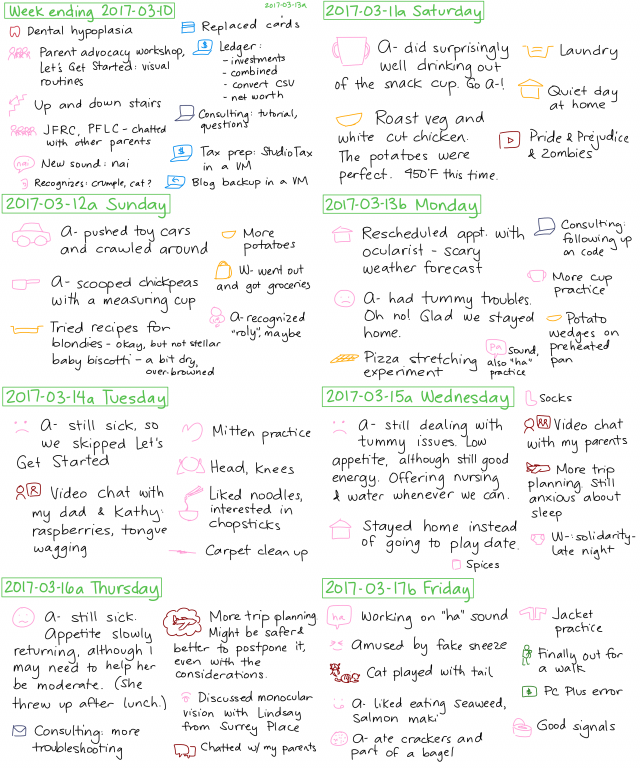 Week ending 2017-03-10
2017-03-13a
Dental hypoplasia
Parent advocacy workshop,
Let's Get Started: visual
routines
Up and down stairs
JFRC, PFLC - chatted
with other parents
nai
New sound: nai
Recognizes: crumple, cat?
Replaced cards
Ledger:
- investments
- combined
- convert CSV
- net worth
Consulting: tutorial,
questions
Tax prep: StudioTax
in a VM
Blog backup in a VM
2017-03-11a Saturday
A- did surprisingly
well drinking out
of the snack cup. Go A-!
Roast veg and
white cut chicken.
The potatoes were
perfect. 450°F this time.
Laundry
Quiet day
at home
Pride & Prejudice
& Zombies
2017-03-12a Sunday
A- pushed toy cars
and crawled around
A- scooped chickpeas
with a measuring cup
Tried recipes for
blondies - okay, but not stellar
baby biscotti - a bit dry,
over-browned
More
potatoes
W- went out
and got groceries
A- recognized
"roly", maybe
2017-03-13b Monday
Rescheduled appt. with
ocularist - scary
weather forecast
A- had tummy troubles.
Oh no! Glad we stayed
home.
Pizza stretching
experiment
Consulting:
following up
on code
More cup
practice
Pn
sound,
also "ha"
practice
Potato
wedges on
preheated
pan
2017-03-14a Tuesday
A- still sick, so
we skipped Let's
Get Started
Video chat with
my dad & Kathy:
raspberries, tongue
wagging
Mitten practice
Head, knees
Liked noodles,
interested in
chopsticks
Carpet clean up
2017-03-15a Wednesday
A- still dealing with
tummy issues. Low
appetite, although still good
energy. Offering nursing
& water whenever we can.
Stayed home instead
of going to play date.
Spices
Socks
Video chat
with my parents
More trip
planning. Still
anxious about
sleep
W-: solidarity-
late night
2017-03-16a Thursday
A- still sick.
Appetite slowly
returning, although I
may need to help her
be moderate. (She
threw up after lunch.)
Consulting: more
troubleshooting
More trip planning
Might be safer &
better to postpone it,
even with the
considerations.
Discussed monocular
vision with Lindsay
from Surrey Place
Chatted w/ my parents
2017-03-17b Friday
ha
Working on "ha" sound
Amused by fake sneeze
Cat played with tail
A- liked eating seaweed,
Salmon maki
A- ate crackers and
part of a bagel
Jacket
practice
Finally out for
a walk
PC Plus error
Good signals